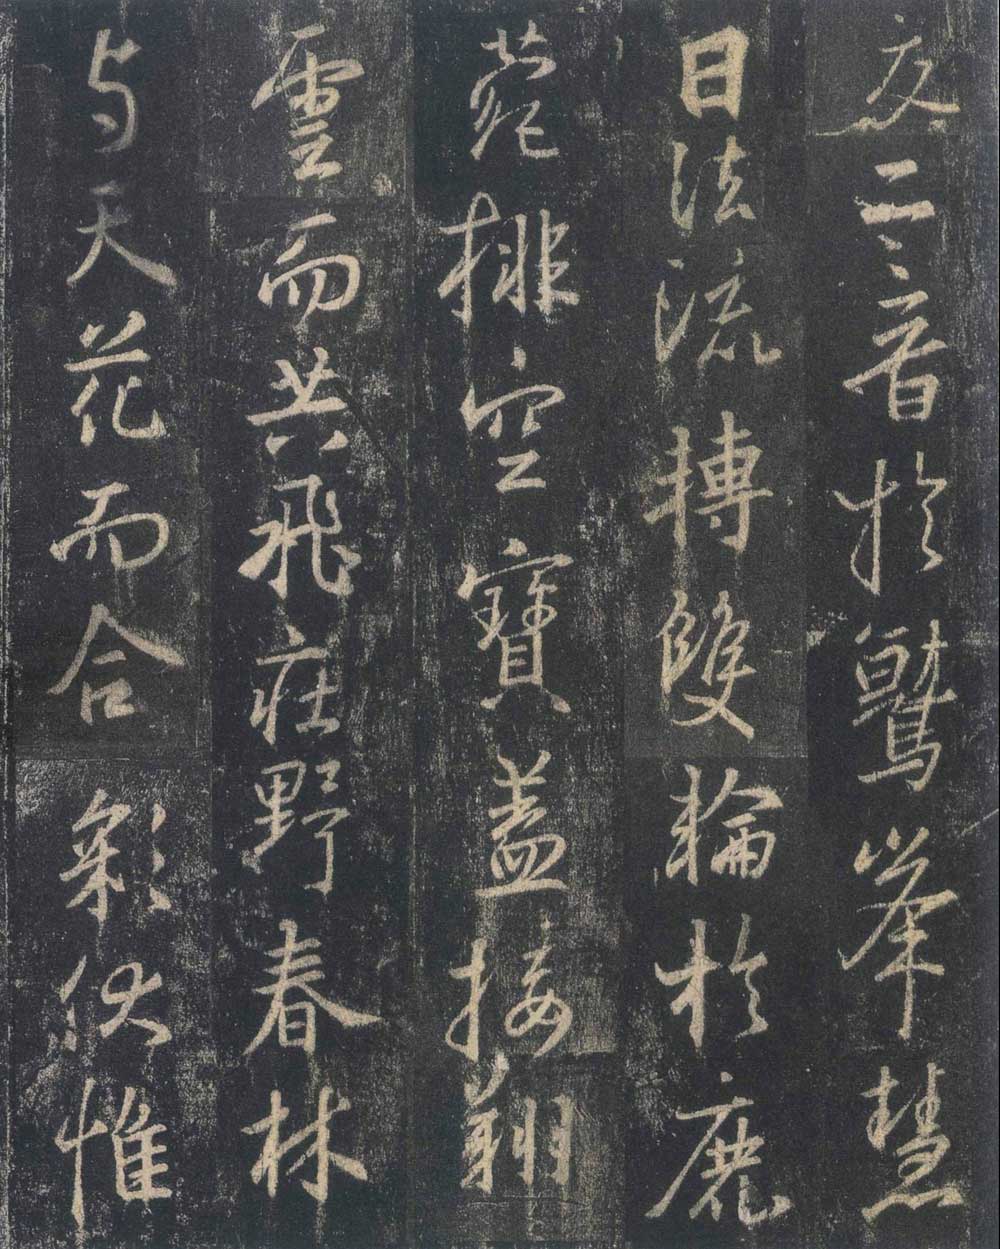 交二音於鷲峯慧
日法流轉雙輪於鹿
苑排空寶蓋接翔
雲而共飛莊野春林
与天花而合彩伏惟